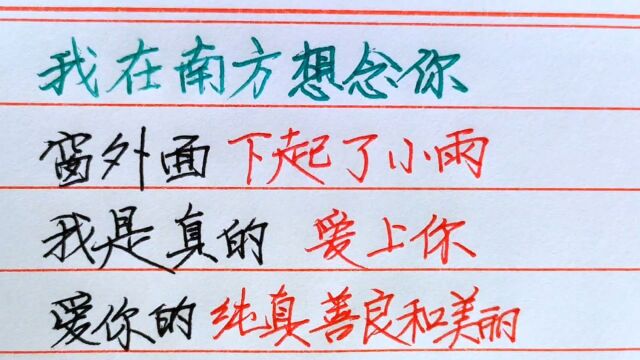 我在南方想念你
窗外面 下起了小雨
我是真的 爱上你
爱你的 纯真善良和美丽